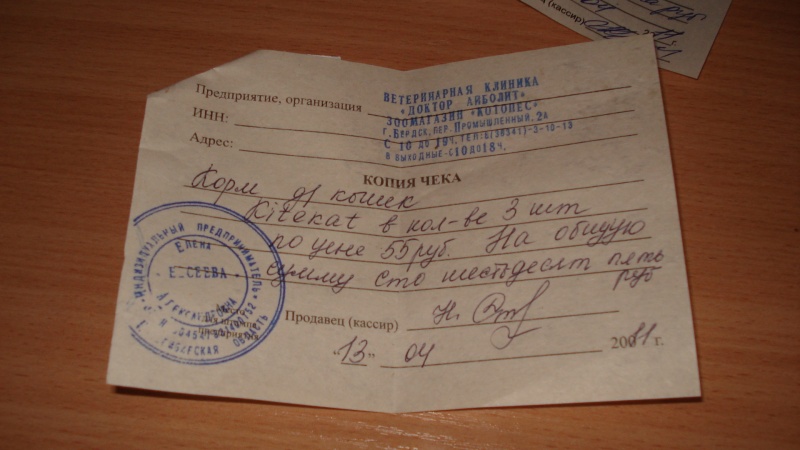 Предприятие, организация
ВЕТЕРИНАРНАЯ КЛИНИКА
«ДОКТОР АЙБОЛИТ»
ЗООМАГАЗИН «КОТОПЕС»
г. Бердск, пер. Промышленный, 2а
С 10 до 19ч. тел. 8(38341)-3-10-13
в выходные-с 10 до 18ч.
ИНН:
Адрес:
КОПИЯ ЧЕКА
Корм д/ кошек
Kitekat в кол-ве 3 шт
по цене 55 руб. На общую
сумму сто шестьдесят пять
руб
Продавец (кассир)
"13" 04 2011 г.
ИНДИВИДУАЛЬНЫЙ ПРЕДПРИНИМАТЕЛЬ
ЕЛЕНА
ЕЛИСЕЕВА
ОБЛАСТЬ
(кассир)